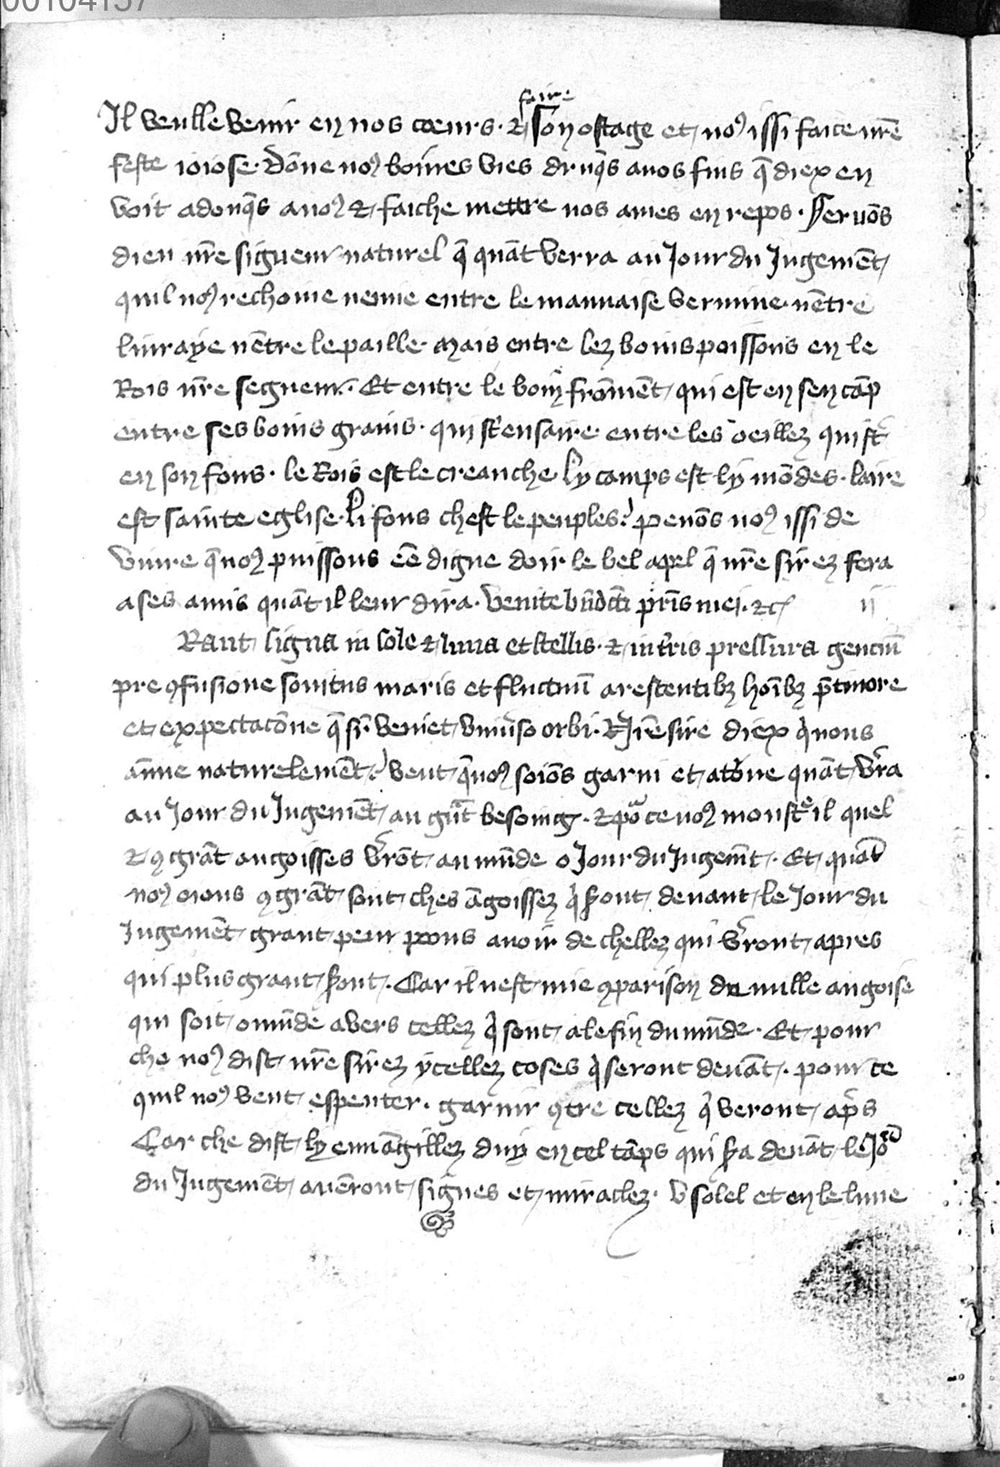 00104157
faire
Il veulle venir en nos coeurs · ⁊ son ostage et noꝰ issi faice nr̄e
feste ioiose · dōne noꝰ boines vies druq̄s a nos fins q̄ diex en
voit adonq̄s a noꝰ ⁊ faiche mettre nos ames en repos · Seruōs
dieu nr̄e signeur naturel q̄ quāt verra au Jour du Jugemēt
quil noꝰ rechoiue nemie entre le mauuaise vermine · nētre
liuraye nētre le paille · Mais entre lez boins poissons en le
Rois nr̄e segneur · Et entre le boin fromēt qui est en sen cāp
entre ses boins grains · qui st ensaire entre les oeillez qui st
en son fons · le Rois est le creanche ly camps est ly mōdes · laire
est sainte eglise · li fons chest le peuples · penōs noꝰ issi de
viure q̄ noꝰ puissons eē digne doir le bel apel q̄ nr̄e sirez fera
a ses amis quāt il leur dira · Venite bn̄dc̄ti pr̄is mei · ⁊c̄ ij
Rant signa in sole ⁊ luna et stellis · ⁊ in tr̄is pressura genciū
pre ꝯfusione sonitus maris et fluctuū arescentibꝫ hoībꝫ p̄ timore
et expectacōne q̄ sr̄ venient vniūso orbi · Nr̄e sire diex q̄ nous
aīme naturelemēt veut q̄ noꝰ soiōs garni et atorne quāt vr̄a
au Jour du Jugemēt au gr̄t besoing · ⁊ poᷣ ce noꝰ monstre il quel
⁊ ꝯ grāt angoisses vr̄ōt au mūde o Jour du Jugemēt · Et quāt
noꝰ oions ꝯ grāt sont ches āgoissez q̄ sont deuant le Jour du
Jugemēt grant peur poons auoir de chellez qui vr̄ont apres
qui plus grant sont · Car il nest mie ꝯparison de nulle angoise
qui soit o mūde avers cellez q̄ sont a le fin du mūde · Et pour
che noꝰ dist nr̄e sirez ycellez coses q̄ seront deuāt · pour ce
quil noꝰ veut espenter · garnir ꝯtre cellez q̄ veront ap̄s
Car che dist ly euuāgillez duy en cel tāps qui sr̄a deuāt le Joᷣ
du Jugemēt auēront signes et miraclez · v solel et en le lune